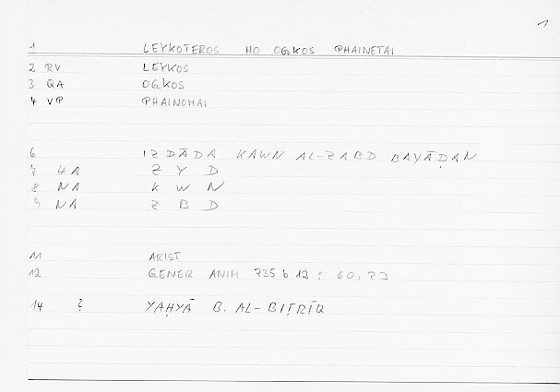 1
1 LEYKOTEROS HO OGKOS PHAINETAI
2 RV. LEYKOS
3 QA OGKOS
4 VP PHAINOMAI
6 IZDĀDA KAWN AL-ZABD BAYĀḌAN
7 HA Z Y D
8 NA K W N
9 NA Z B D
11 ARIST
12 GENER ANIM 735 b 12 : 60, 23
14 ? YAḤYĀ B. AL-BIṬRĪQ